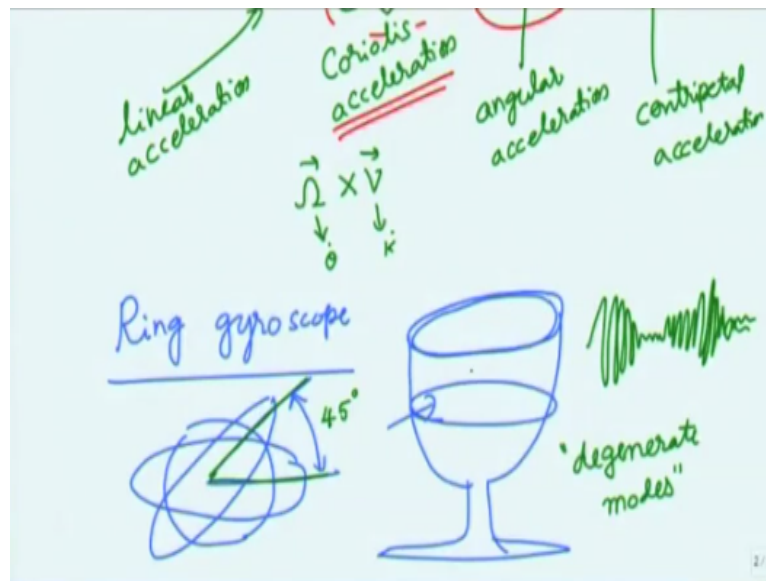 linear
acceleration
Coriolis
acceleration
angular
acceleration
centripetal
acceleration
Ω⃗ × V⃗
θ̇
ẋ
Ring gyroscope
45°
"degenerate
modes"